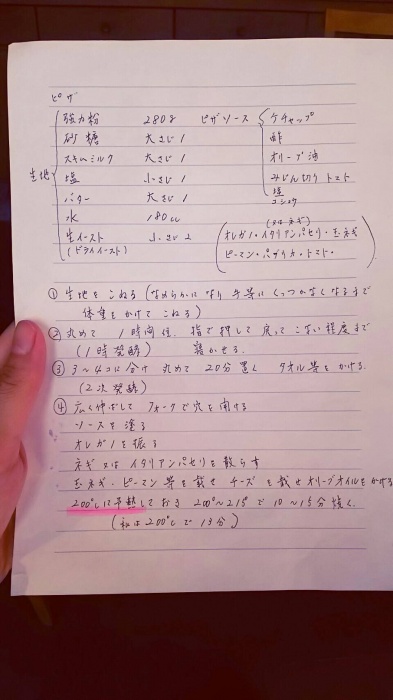 ピザ
生地
強力粉 280g
砂糖 大さじ1
スキムミルク 大さじ1
塩 小さじ1
バター 大さじ1
水 180cc
生イースト 小さじ2
(ドライイースト)
ピザソース
ケチャップ
酢
オリーブ油
みじん切りトマト
塩
コショウ
オレガノ・イタリアンパセリ・玉ネギ
ピーマン・パプリカ・トマト・
① 生地をこねる(なめらかになり手等にくっつかなくなるまで
体重をかけてこねる)
② 丸めて 1時間位、指で押して戻ってこない程度まで
(1時発酵) 寝かせる。
③ 3〜4つに分け 丸めて 20分置く タオル等をかける。
(2次発酵)
④ 広く伸ばして フォークで穴を開ける
ソースを塗る
オレガノを振る
ネギ又はイタリアンパセリを散らす
玉ネギ・ピーマン等を載せ チーズを載せオリーブオイルをかける
200℃に予熱しておき 200°〜215°で10〜15分焼く。
(私は200℃で13分)